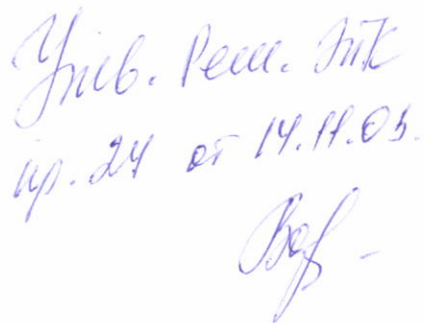 Утв. Реш. ЭТК
пр. 24 от 14.11.03.